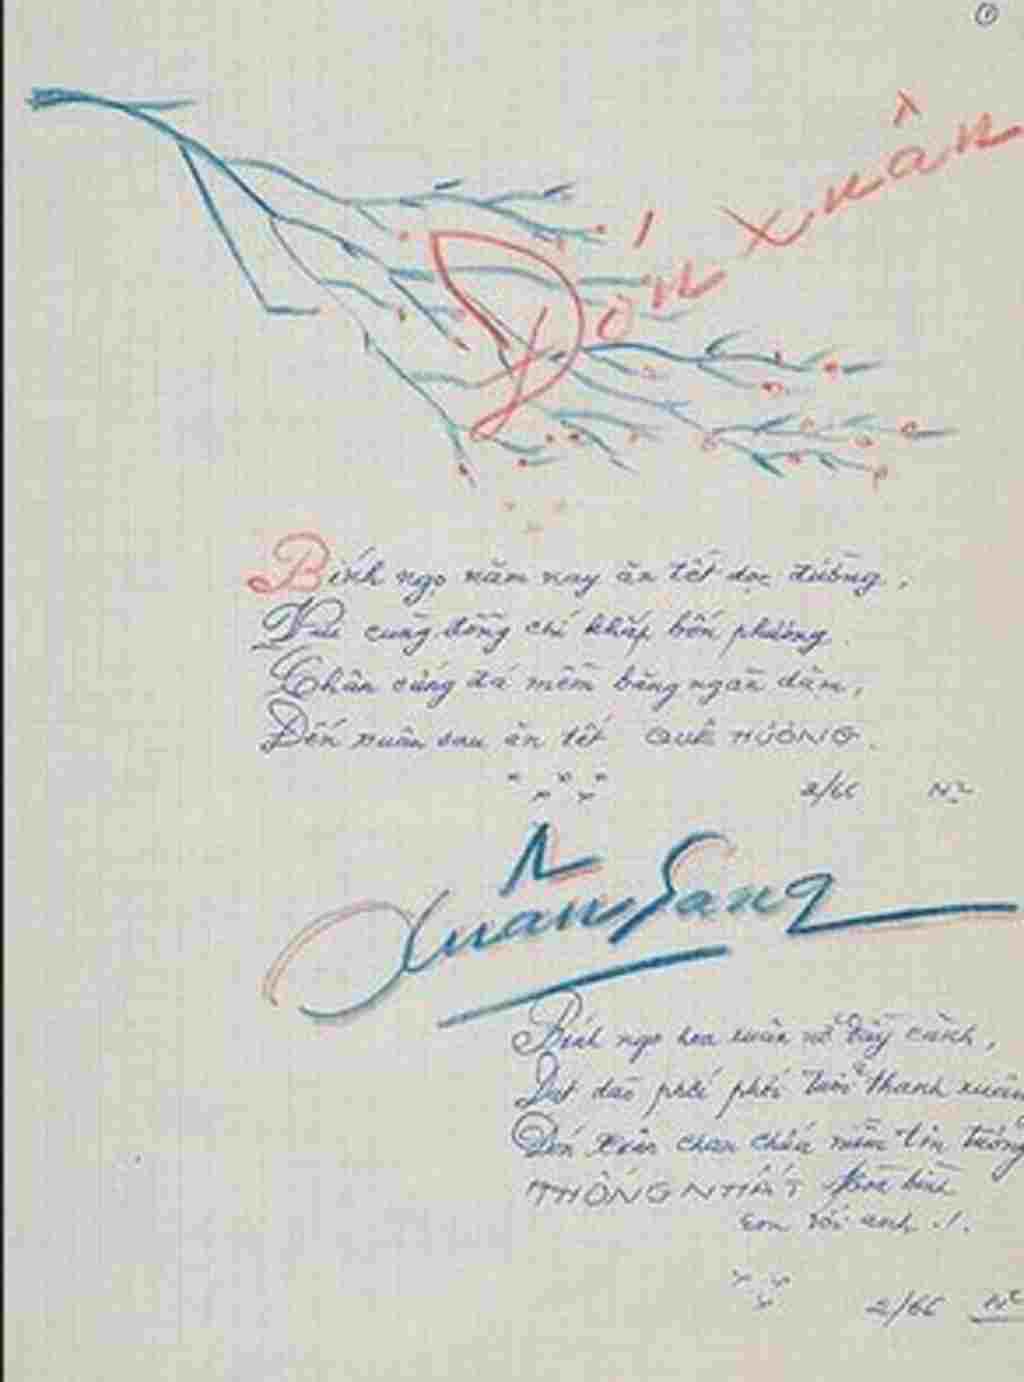 ①
Đón xuân
Bính ngọ năm nay ăn tết dọc đường,
Vui cùng đồng chí khắp bốn phương.
Chân cứng đá mềm băng ngàn dặm,
Đến xuân sau ăn tết QUÊ HƯƠNG.
2/66
Xuân Sang
Bính ngọ hoa xuân nở đầy cành,
dào phơi phới tuổi thanh xuân
Đón xuân chan chứa niềm tin tưởng
THỐNG NHẤT hòa bình
em với anh ./.
2/66